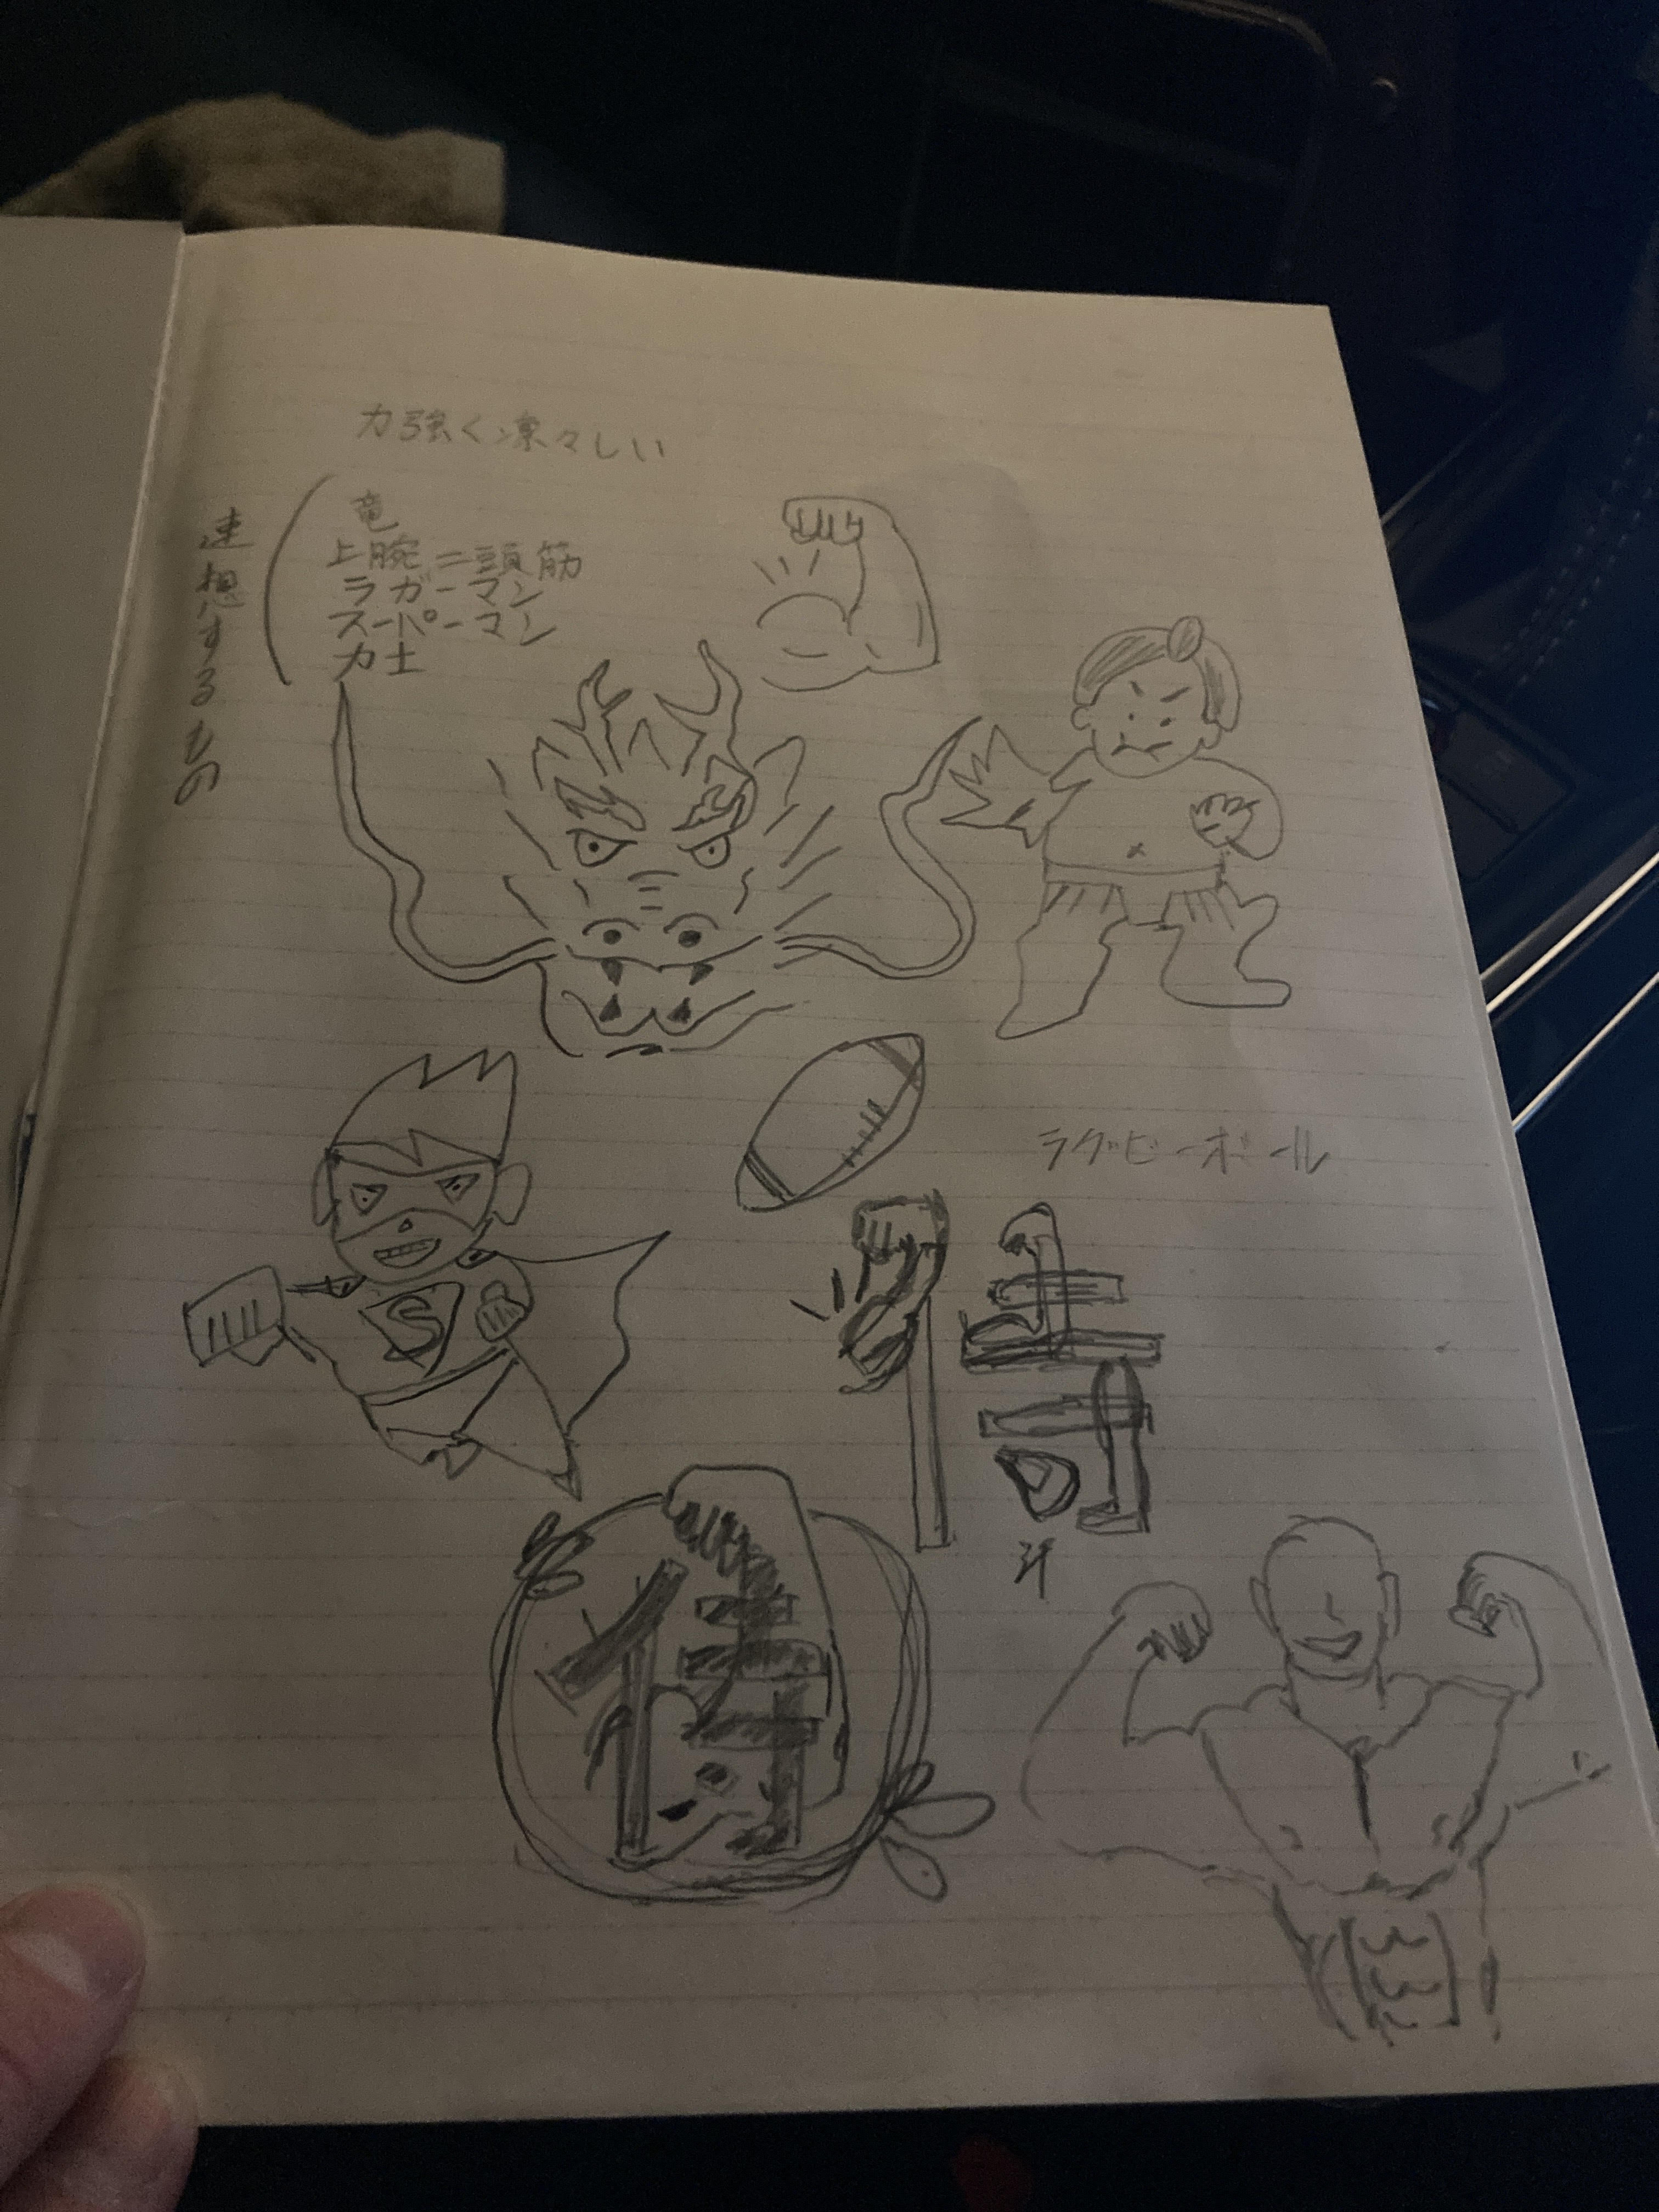 力強く凛々しい
連想するもの
竜
上腕二頭筋
ラガーマン
スーパーマン
力士
ラグビーボール
S
侍
侍